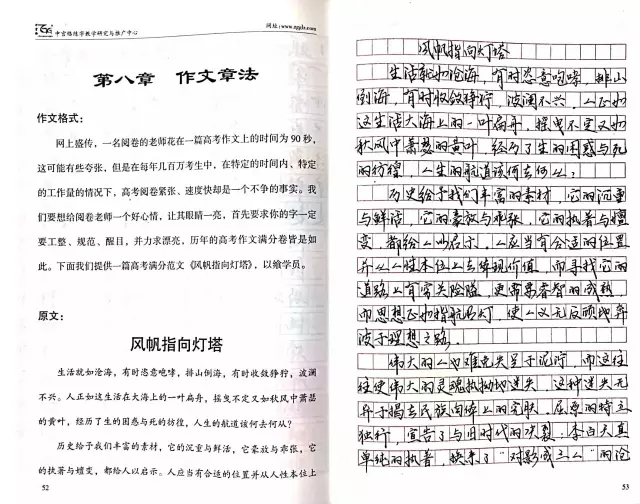 中宫格练字教学研究与推广中心
网址:www.zgglz.com
第八章 作文章法
作文格式:
网上盛传,一名阅卷的老师花在一篇高考作文上的时间为90秒,
这可能有些夸张,但是在每年几百万考生中,在特定的时间内、特定
的工作量的情况下,高考阅卷紧张、速度快却是一个不争的事实。我
们要想给阅卷老师一个好心情,让其眼睛一亮,首先要求你的字一定
要工整、规范、醒目,并力求漂亮,历年的高考作文满分卷皆是如
此。下面我们提供一篇高考满分范文《风帆指向灯塔》,以飨学员。
原文:
风帆指向灯塔
生活就如沧海,有时恣意咆哮,排山倒海,有时收敛狰狞,波澜
不兴。人正如这生活在大海上的一叶扁舟,摇曳不定又如秋风中萧瑟
的黄叶,经历了生的困惑与死的彷徨,人生的航道该何去何从?
历史给予我们丰富的素材,它的沉重与鲜活,它豪放与乖张,它
的执著与嬗变,都给人以启示。人应当有合适的位置并从人性本位上
52
风帆指向灯塔
生活就如沧海,有时恣意咆哮,排山
倒海,有时收敛狰狞,波澜不兴。人正如
这生活大海上的一叶扁舟,摇曳不定又如
秋风中萧瑟的黄叶,经历了生的困惑与死
的彷徨,人生的航道该何去何从?
历史给予我们丰富的素材,它的沉重
与鲜活,它的豪放与乖张,它的执著与嬗
变,都给人以启示,人应当有合适的位置
并从人性本位上去体现价值,而寻找它的
道路上有常关险隘,更需要睿智的成熟
而思想正如指航明灯,使人义无反顾地奔
波于理想之路。
伟大的人也难免失足于泥泞,而这往
往使伟大的灵魂执拗地迷失,这种迷失无
异于揭去民族肉体上的完肤,屈原的特立
独行,宣告了与旧时代的决裂;李白天真
单纯的执著,换来了"对影成三人"的沧
53